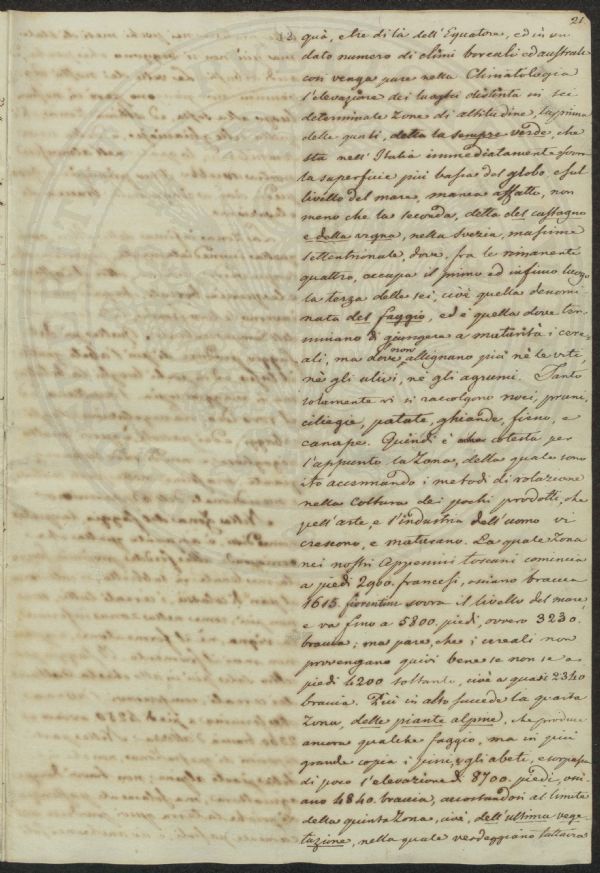 21
12
quà, e tre di là dell'Equatore, ed in un
dato numero di climi boreali ed australi
così venga pure nella Climatologia
l'elevazione dei luoghi distinta in sei
determinate zone di altitudine, la prima
delle quali, detta la sempre verde, che
sta nell'Italia immediatamente sovra
la superficie più bassa del globo, e sul
livello del mare, manca affatto, non
meno che la seconda, detta del castagno
e della vigna, nella Svezia, massime
settentrionale, dove, fra le rimanenti
quattro, occupa il primo ed infimo luogo
la terza delle sei, cioè quella denomi
nata del faggio, ed è quella dove ter
minano di giungere a maturità i cere
ali, ma dove non allignano più nè le viti,
nè gli ulivi, nè gli agrumi. Tanto
solamente vi si raccolgono noci, prune,
ciliegie, patate, ghiande, fieno, e
canape. Quindi è cotesta per
l'appunto la Zona, della quale sono
ito accennando i metodi di rotazione
nella Coltura dei pochi prodotti, che
pell'arte, e l'industria dell'uomo vi
crescono, e maturano. La quale Zona
nei nostri Appennini toscani comincia
a piedi 2900. francesi, ossiano braccia
1615. fiorentine sovra il livello del mare,
e va fino a 5800. piedi, ovvero 3230.
braccia; ma pare, che i cereali non
provengano quivi bene se non se a
piedi 4200 soltanto, cioè a quasi 2340
braccia. Più in alto succede la quarta
Zona, delle piante alpine, che produce
ancora qualche faggio, ma in più
grande copia i pini, e gli abeti, e sorpassa
di poco l'elevazione di 8700. piedi, ossi
ano 4840. braccia, accostandosi al limite
della quinta Zona, cioè, dell'ultima vege
tazione, nella quale verdeggiano tuttavia